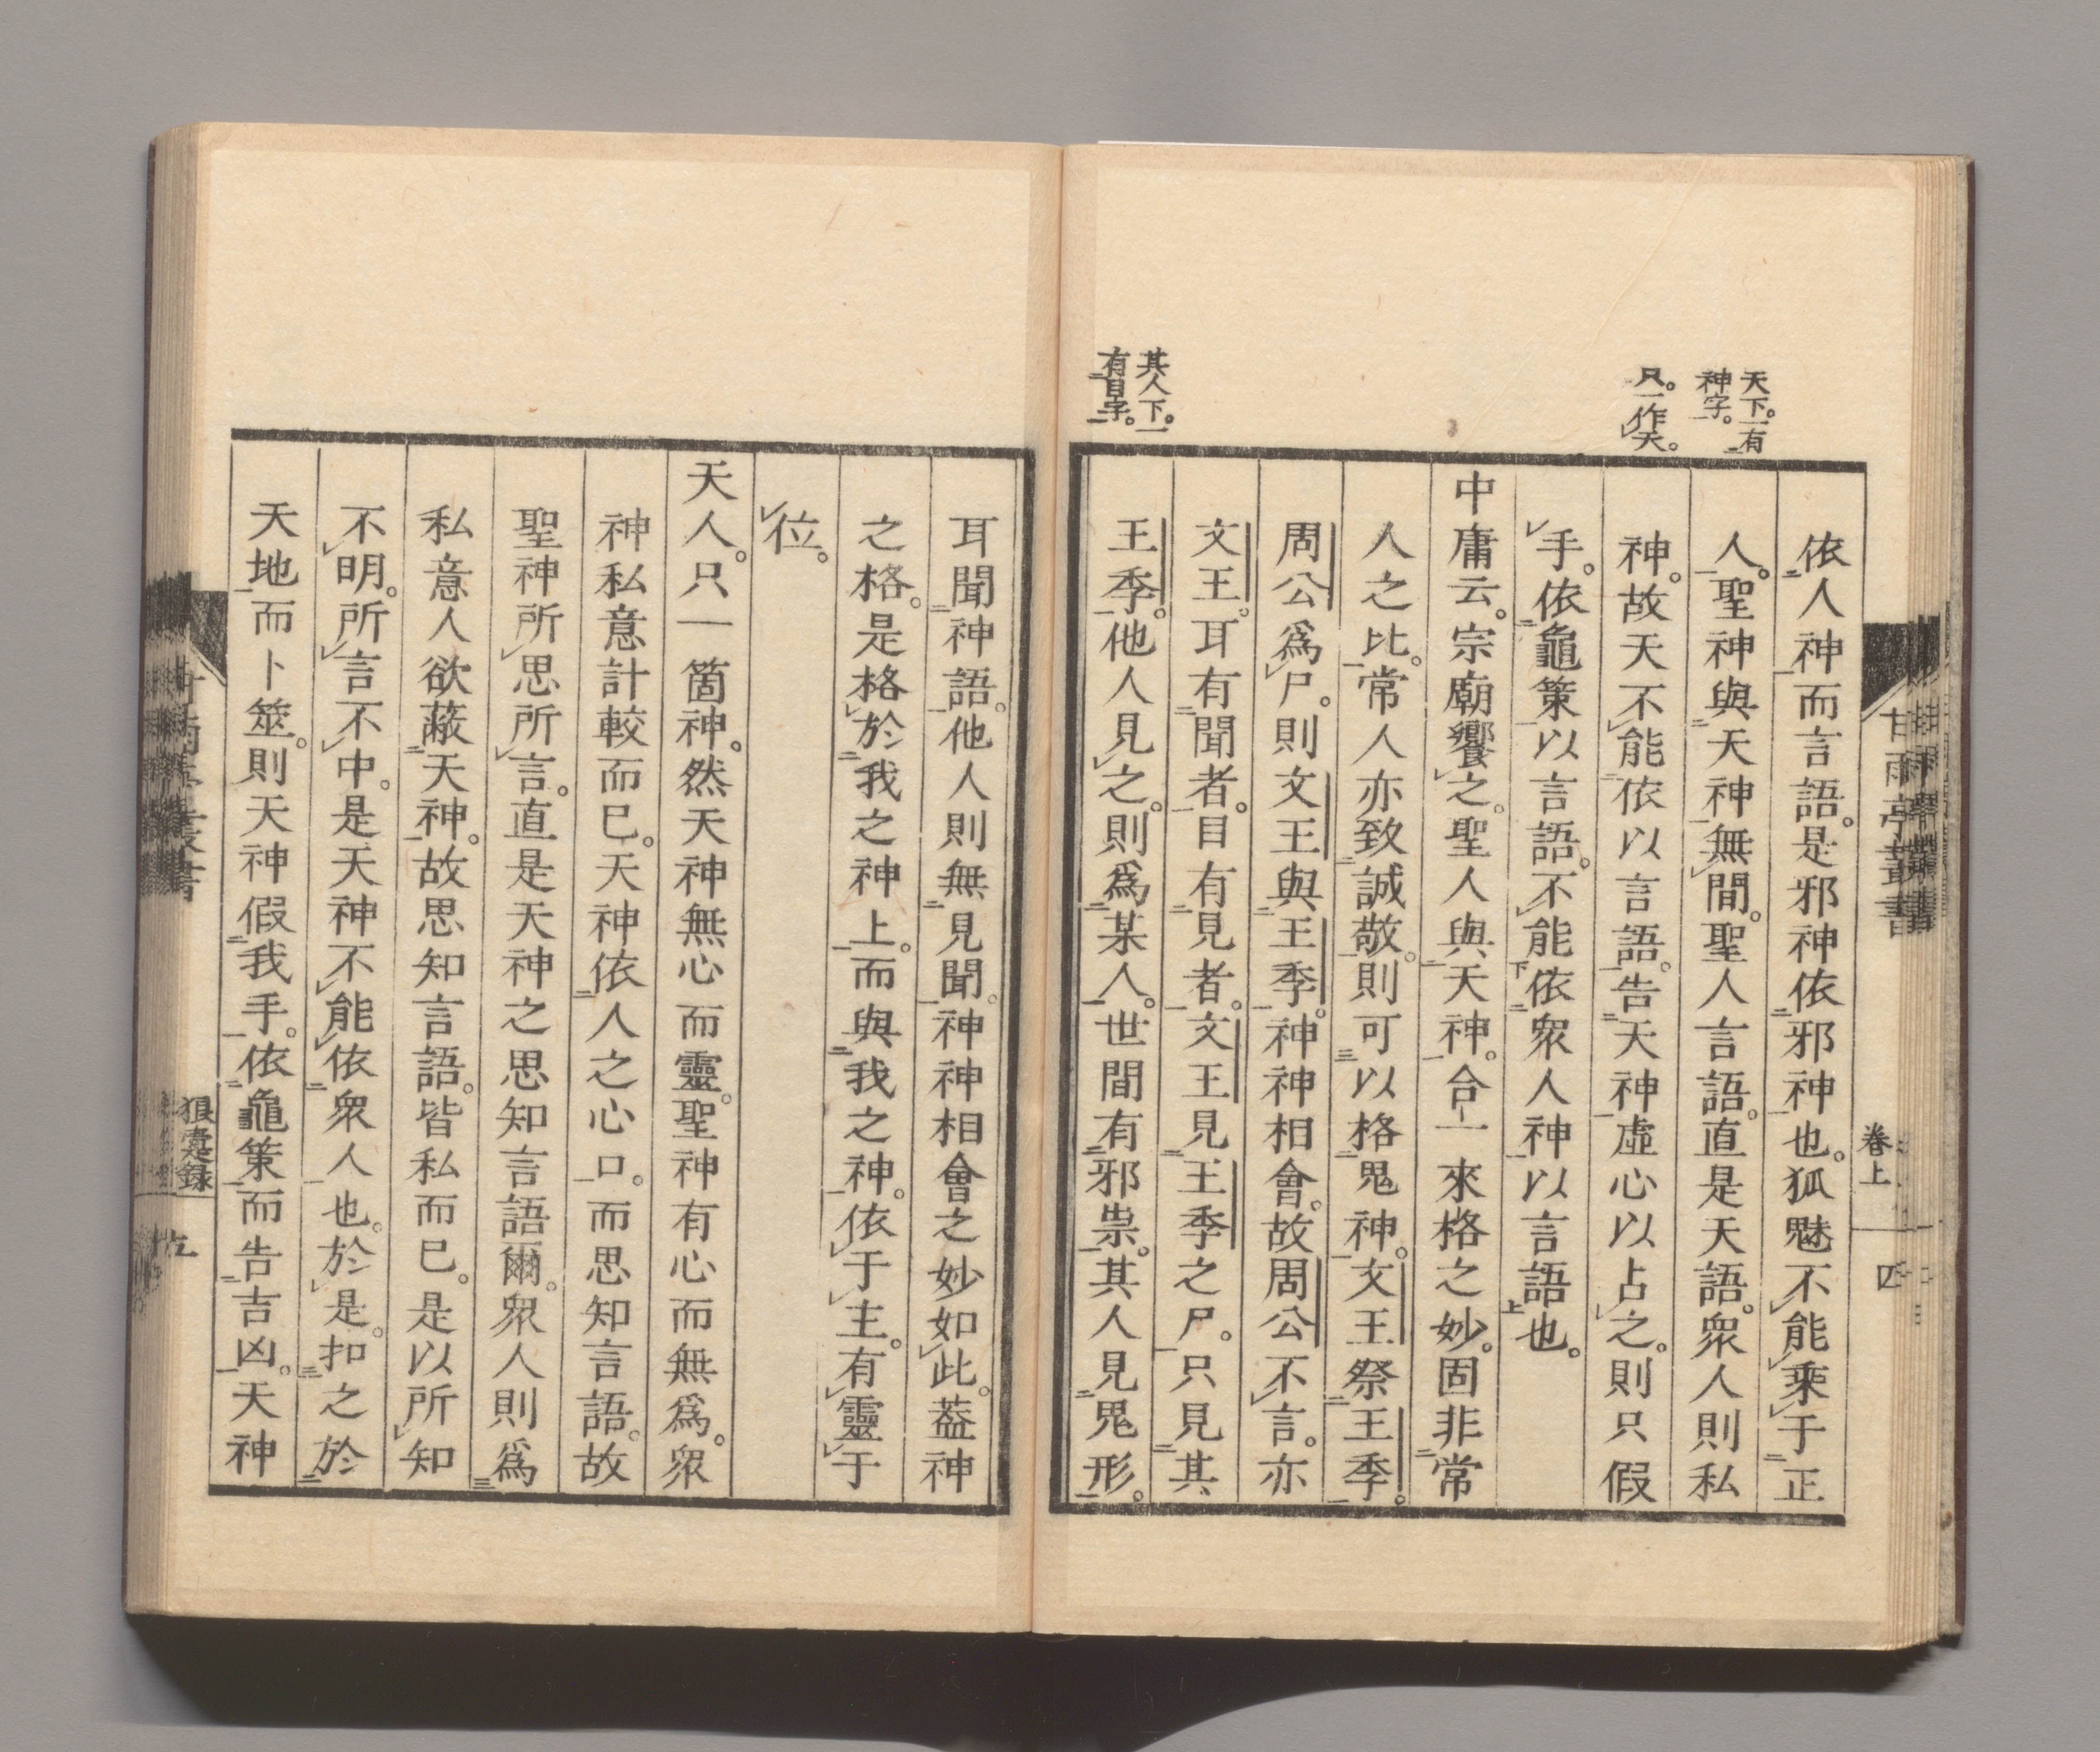 甘雨亭叢書
卷上
四
天下。一有
神字。
只。一作天。
其人下。一
有目字。
依人神而言語。是邪神依邪神也。狐魅不能乘于正
人。聖神與天神無間。聖人言語。直是天語。衆人則私
神。故天不能依以言語。告天神虛心以占之。則只假
手。依龜策以言語。不能依衆人神以言語也。
中庸云。宗廟饗之。聖人與天神。合一來格之妙。固非常
人之比。常人亦致誠敬。則可以格鬼神。文王祭王季。
周公爲尸。則文王與王季。神神相會。故周公不言。亦
文王。耳有聞者。目有見者。文王見王季之尸。只見其
王季。他人見之。則爲某人。世間有邪祟。其人見鬼形。
耳聞神語。他人則無見聞。神神相會之妙如此。蓋神
之格。是格於我之神上。而與我之神。依于主。有靈于
位。
天人。只一箇神。然天神無心而靈。聖神有心而無爲。衆
神私意計較而已。天神依人之心口。而思知言語。故
聖神所思所言。直是天神之思知言語爾。衆人則爲
私意人欲蔽天神。故思知言語。皆私而已。是以所知
不明。所言不中。是天神不能依衆人也。於是。扣之於
天地而卜筮。則天神假我手。依龜策而告吉凶。天神
狼疐録
五